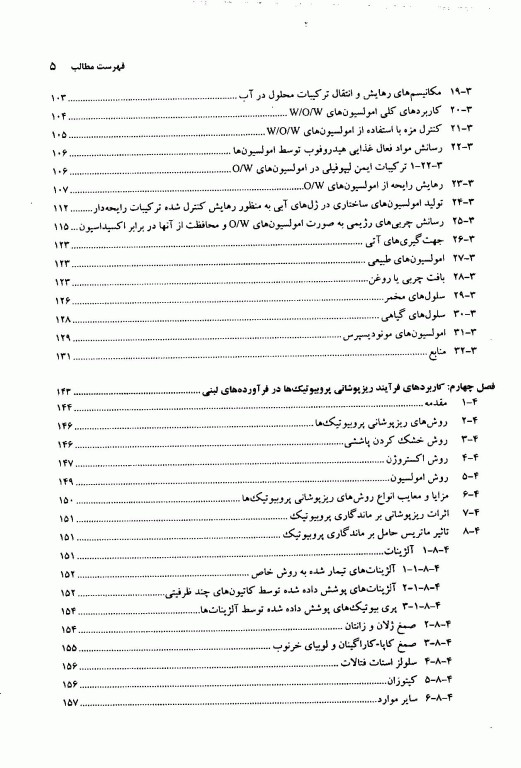 فهرست مطالب ۵
۳-۱۹ مکانیسم‌های رهایش و انتقال ترکیبات محلول در آب ... ۱۰۳
۳-۲۰ کاربردهای کلی امولسیون‌های W/O/W ... ۱۰۴
۳-۲۱ کنترل مزه با استفاده از امولسیون‌های W/O/W ... ۱۰۵
۳-۲۲ رسانش مواد فعال غذایی هیدروفوب توسط امولسیون‌ها ... ۱۰۶
۳-۲۲-۱ ترکیبات ایمن لیپوفیلی در امولسیون‌های O/W ... ۱۰۶
۳-۲۳ رهایش رایحه از امولسیون‌های O/W ... ۱۰۷
۳-۲۴ تولید امولسیون‌های ساختاری در ژل‌های آبی به منظور رهایش کنترل شده ترکیبات رایحه‌دار ... ۱۱۲
۳-۲۵ رسانش چربی‌های رژیمی به صورت امولسیون‌های O/W و محافظت از آنها در برابر اکسیداسیون ... ۱۱۵
۳-۲۶ جهت‌گیری‌های آتی ... ۱۲۳
۳-۲۷ امولسیون‌های طبیعی ... ۱۲۳
۳-۲۸ بافت چربی یا روغن ... ۱۲۳
۳-۲۹ سلول‌های مخمر ... ۱۲۶
۳-۳۰ سلول‌های گیاهی ... ۱۲۸
۳-۳۱ امولسیون‌های مونودیسپرس ... ۱۲۹
۳-۳۲ منابع ... ۱۳۱
فصل چهارم: کاربردهای فرآیند ریزپوشانی پروبیوتیک‌ها در فرآورده‌های لبنی ... ۱۴۳
۴-۱ مقدمه ... ۱۴۴
۴-۲ روش‌های ریزپوشانی پروبیوتیک‌ها ... ۱۴۶
۴-۳ روش خشک کردن پاششی ... ۱۴۶
۴-۴ روش اکستروژن ... ۱۴۷
۴-۵ روش امولسیون ... ۱۴۹
۴-۶ مزایا و معایب انواع روش‌های ریزپوشانی پروبیوتیک‌ها ... ۱۵۰
۴-۷ اثرات ریزپوشانی بر ماندگاری پروبیوتیک ... ۱۵۱
۴-۸ تاثیر ماتریس حامل بر ماندگاری پروبیوتیک ... ۱۵۱
۴-۸-۱ آلژینات ... ۱۵۱
۴-۸-۱-۱ آلژینات‌های تیمار شده به روش خاص ... ۱۵۲
۴-۸-۱-۲ آلژینات‌های پوشش داده شده توسط کاتیون‌های چند ظرفیتی ... ۱۵۲
۴-۸-۱-۳ پری بیوتیک‌های پوشش داده شده توسط آلژینات‌ها ... ۱۵۴
۴-۸-۲ صمغ ژلان و زانتان ... ۱۵۴
۴-۸-۳ صمغ کاپا-کاراگینان و لوبیای خرنوب ... ۱۵۵
۴-۸-۴ سلولز استات فتالات ... ۱۵۶
۴-۸-۵ کیتوزان ... ۱۵۶
۴-۸-۶ سایر موارد ... ۱۵۷